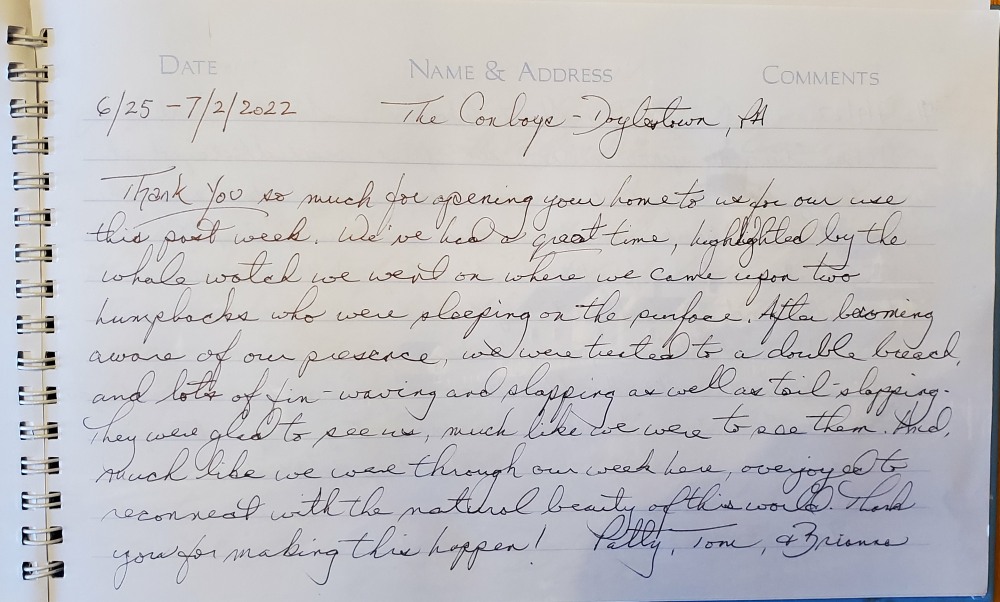 DATE NAME & ADDRESS COMMENTS
6/25 - 7/2/2022 The Conboys - Doylestown, PA
Thank You so much for opening your home to us for our use
this past week. We've had a great time, highlighted by the
whale watch we went on where we came upon two
humpbacks who were sleeping on the surface. After becoming
aware of our presence, we were treated to a double breach,
and lots of fin-waving and slapping as well as tail-slapping.
They were glad to see us, much like we were to see them. And,
much like we were through our week here, overjoyed to
reconnect with the natural beauty of this world. Thank
you for making this happen! Patty, Tom, & Brianna